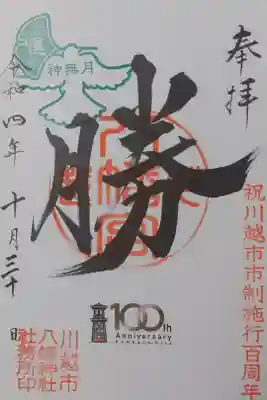 奉拝
祝川越市市制施行百周年
勝
八幡宮
神無月
100th
Anniversary
川越市
八幡神社
社務所印
令和四年 十月三十